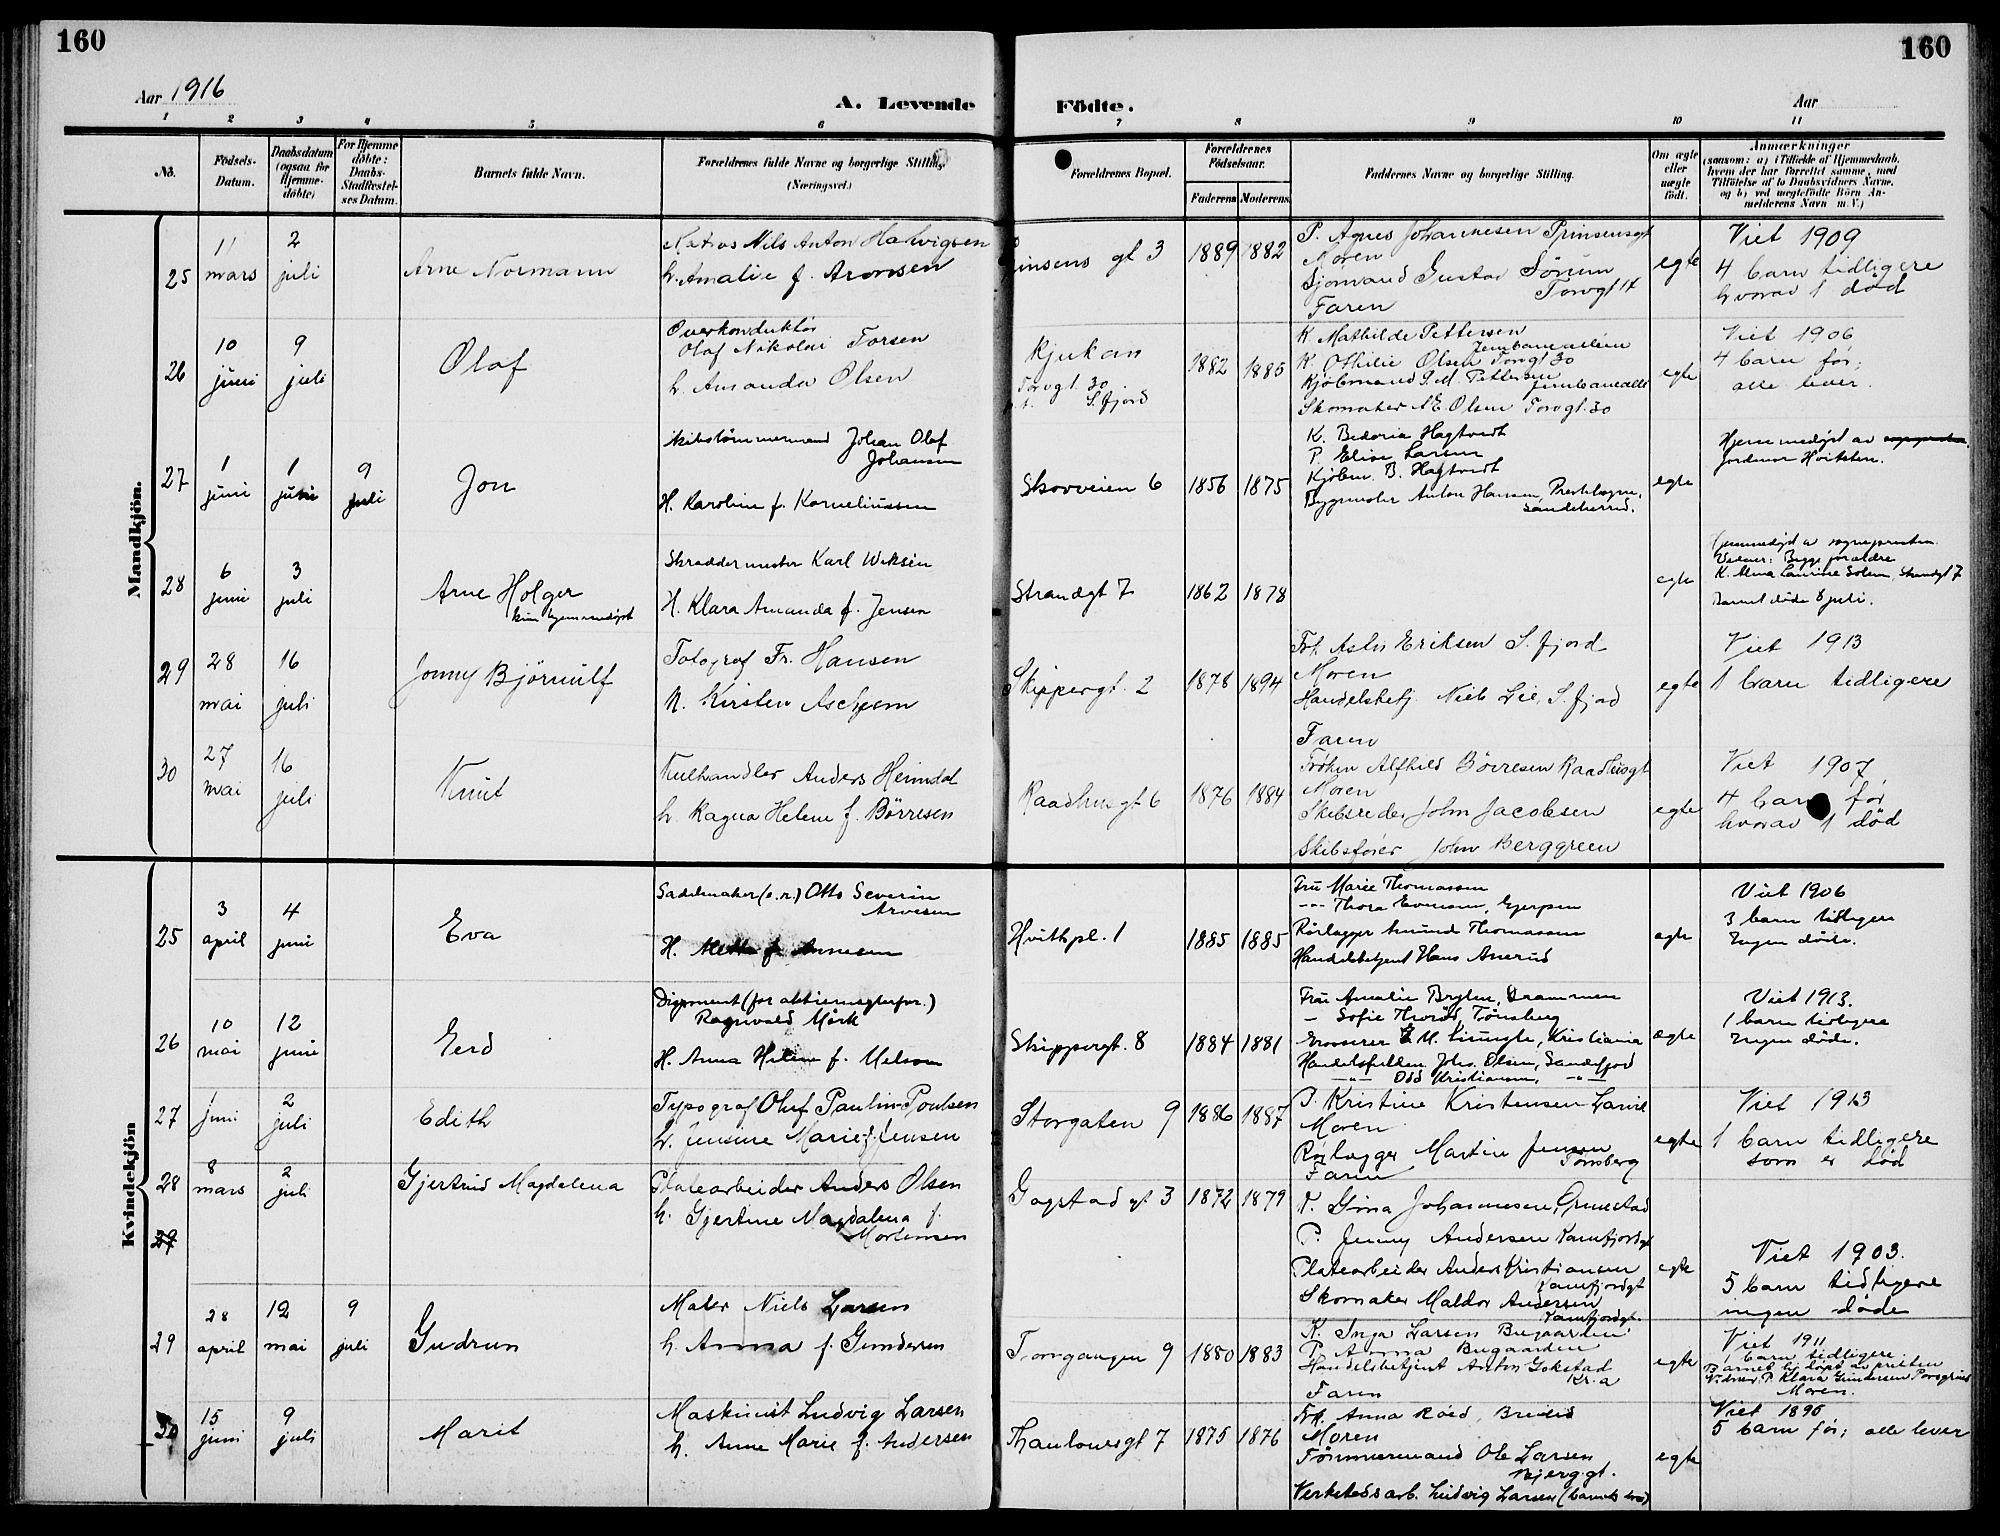 160
160
Aar 1916
A. Levende Födte.
Aar
1 2 3 4 5 6 7 8 9 10 11
No.
Födsels-Datum.
Daabsdatum (ogsaa for Hjemme-döbte)
For Hjemme döbte: Daabs-Stadfæstel-ses Datum.
Barnets fulde Navn.
Forældrenes fulde Navne og borgerlige Stilling (Næringsvei.)
Forældrenes Bopæl.
Forældrenes Födselsaar.
Faderens Moderens
Faddernes Navne og borgerlige Stilling.
Om ægte eller uægte födt.
Anmærkninger
(saasom: a) i Tilfælde af Hjemmedaab, hvem der har forrettet samme, med Tilföielse af to Daabsvidners Navne, og b) ved uægtefödte Börn An-melderens Navn m.V.)
Mandkjön.
25
11 mars
2 juli
Arne Normann
Matros Nils Anton Halvigsen
h. Amalie f. Aronsen
insens gt 3
1889 1882
P. Agnes Johannesen Prinsensgt
Moren
Sjømand Gustav Sørum
Torvgt 14
Faren
egte
Viet 1909
4 barn tidligere
hvorav 1 död
26
10 juni
9 juli
Olaf
Overkonduktör
Olaf Nikolai Torsen
h. Amanda Olsen
Rjukan
Torvgt. 30
S.fjord
1882 1885
K. Mathilde Pettersen
Jernbanealleen
K. Othilie Olsen Torvgt 30
Kjøbmand S.M. Pettersen Jernbanealle
Skomaker A E. Olsen Torvgt. 30
egte
Viet 1906
4 barn før;
alle lever.
27
1 juni
1 juni
9 juli
Jon
Skibstömmermand Johan Olaf
Johansen
H. Karoline f. Korneliussen
Skovveien 6
1856 1875
K. Bedoria Hagtvedt
P. Elise Larsen
Kjøbm. B. Hagtvedt
Bygmester Anton Hansen,
Sandeherred.
egte
Hjemmedøpt av
jordmor Hvitsten.
28
6 juni
3 juli
Arne Holger
kun hjemmedöpt
Skreddermester Karl Wiksén
H. Klara Amanda f. Jensen
Strandgt 7
1862 1878
egte
Hjemmedøpt av sogneprsten.
Vidner: Begge forældre
K. Alma Laurine Solem, Strandgt 7
Barnet døde 8 juli.
29
28 mai
16 juli
Jonny Björnulf
Fotograf Fr. Hansen
h. Kirsten Aschjem
Skippergt. 2
1878 1894
Frk. Asta Eriksen S.fjord
Moren
Handelsbetj. Niels Lie, S.fjord
Faren
egte
Viet 1913
1 barn tidligere
30
27 mai
16 juli
Knut
Kulhandler Anders Heimdal
h. Ragna Helene f. Börresen
Raadhusgt 6
1876 1884
Frøken Alfhild Börresen Raadhusgt
Moren
Skibsreder John Jacobsen
Skibsfører John Berggreen
egte
Viet 1907
4 barn før
hvorav 1 död
Kvindekjön
25
3 april
4 juni
Eva
Sadelmaker (e.n.) Otto Severin
Arvesen
H. Metta f. Arnesen
Hvithpl. 1
1885 1885
Fru Marie Thomassen
--- Thora Evensen, Gjerpen
Rørlægger Amund Thomassen
Handelsbetjent Hans Anerud
ægte
Viet 1906
3 barn tidligere
Ingen døde.
26
10 mai
12 juni
Gerd
Disponent
Ragnvald Mörk
H. Anna Helene f. Melsom
Skippergt. 8
1884 1881
Fru Amalie Brylen, Drammen
- Sofie Thorød, Tønsberg
Grosserer M. Liungh, Kristiania
Johs. Olsen, Sandefjord
Odd Kristiansen,
ægte
Viet 1913.
1 barn tidligere
Ingen døde.
27
1 juni
2 juli
Edith
Typograf Oluf Paulin Poulsen
h. Jensine Marie f. Jensen
Storgaten 9
1886 1887
P. Kristine Kristensen Larvik
Moren
Rørlægger Martin Jensen
Tönsberg
Faren
egte
Viet 1913
1 barn tidligere
som er död
28
8 mars
2 juli
Gjertrud Magdalena
Platearbeider Anders Olsen
h. Gjertine Magdalena f.
Mortensen
Gogstad gt 3
1872 1879
F. Gina Johannesen, Grimstad
P. Jenny Andersen Kamfjordgt
Platearbeider Anders Kristiansen
Kamfjordgt
Skomaker Maldor Andersen
Kamfjordgt.
egte
Viet 1903.
5 barn tidligere
ingen døde
29
29
28 april
12 mai
9 juli
Gudrun
Maler Niels Larsen
h. Anna f. Gundersen
Torvgangen 9
1880 1883
K. Inga Larsen Bugaarden
P. Anna Bugaarden
Handelsbetjent Anton Gokstad
Kr.a
Faren
egte
Viet 1911
1 barn tidligere
Barnet hj. döpt av presten
Vidner, P. Klara Gundersen Porsgrund
Moren.
30
15 juni
9 juli
Marit
Maskinist Ludvig Larsen
h. Anne Marie f. Andersen
Thaulowsgt 7
1875 1876
Frk. Anna Röed, Breilid
Moren
Tömmermand Ole Larsen
Bjerggt.
Verkstedsarb. Ludvig Larsen (barnets bror)
egte
Viet 1896
5 barn før; alle lever